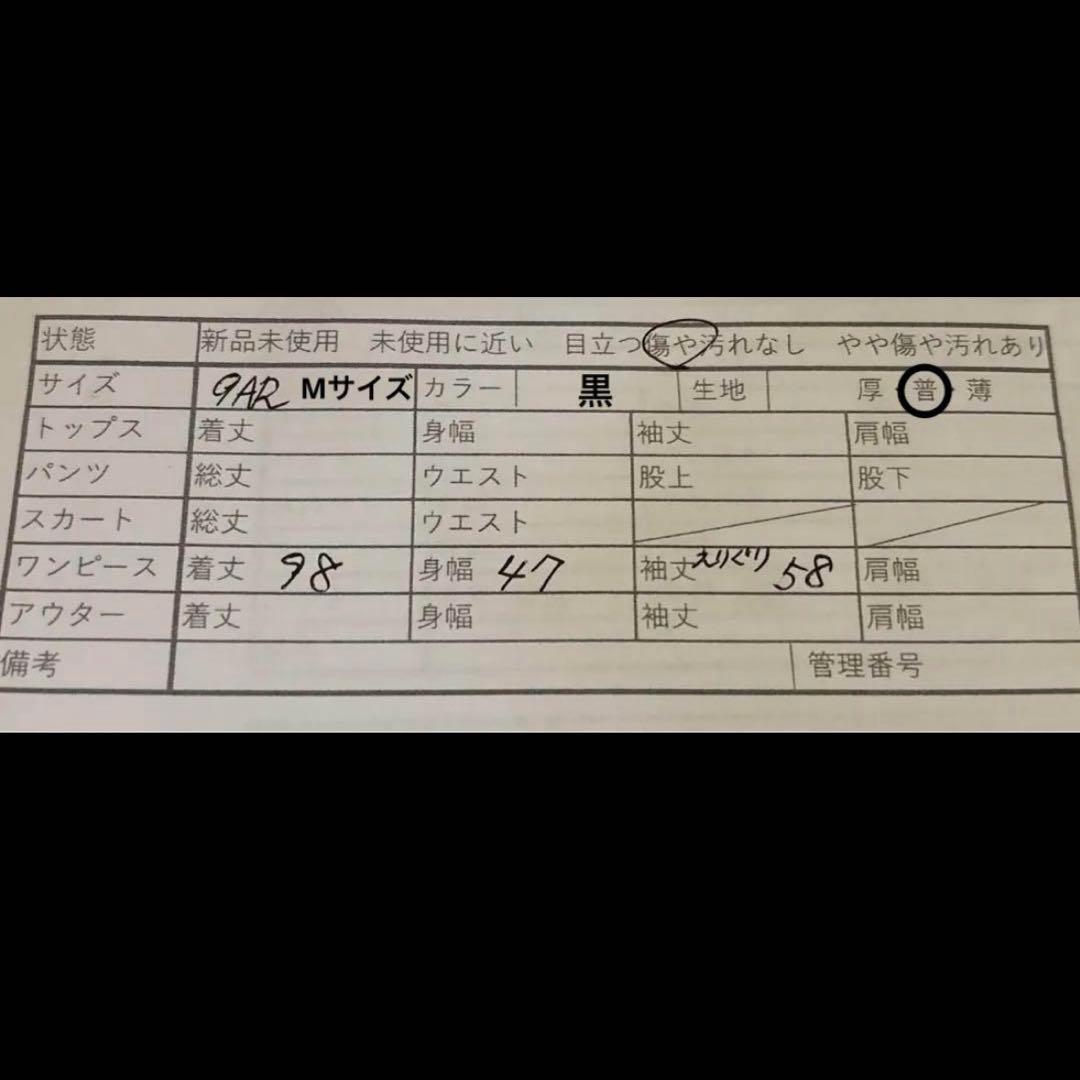 状態 新品未使用 未使用に近い 目立つ傷や汚れなし やや傷や汚れあり
サイズ 9AR Mサイズ カラー 黒 生地 厚 普 薄
トップス 着丈 身幅 袖丈 肩幅
パンツ 総丈 ウエスト 股上 股下
スカート 総丈 ウエスト
ワンピース 着丈 98 身幅 47 袖丈 えりぐり 58 肩幅
アウター 着丈 身幅 袖丈 肩幅
備考 管理番号